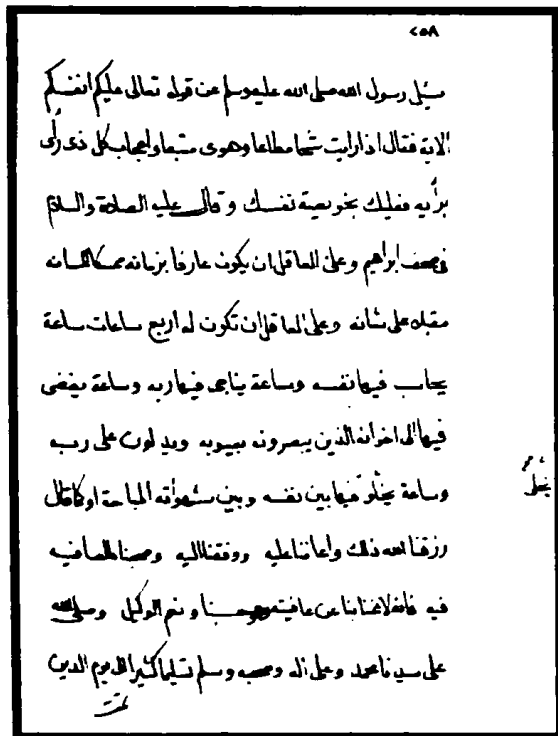 ٢٥٨
سئل رسول الله صلى الله عليه وسلم عن قوله تعالى عليكم انفسكم
الاية فقال اذا رايت شحا مطاعا وهوى متبعا واعجاب كل ذى رأى
برأيه فعليك بخويصة نفسك وقال عليه الصلاة والسلام
فى صحف ابراهيم وعلى العاقل ان يكون عارفا بزمانه ممسكا للسانه
مقبلا على شانه وعلى العاقل ان تكون له اربع ساعات ساعة
يحاسب فيها نفسه وساعة يناجى فيها ربه وساعة يفضى
فيها الى اخوانه الذين يبصرونه بعيوبه ويدلونه على ربه
وساعة يخلو فيها بين نفسه وبين شهواته المباحة او كما قال
يخلى
رزقنا الله ذلك واعاننا عليه ووفقنا اليه وصحبنا العافيه
فيه فانه لا غنا بنا عن عافيته وهو حسبنا ونعم الوكيل وصلى الله
على سيدنا محمد وعلى اله وصحبه وسلم تسليما كثيرا الى يوم الدين
تمت